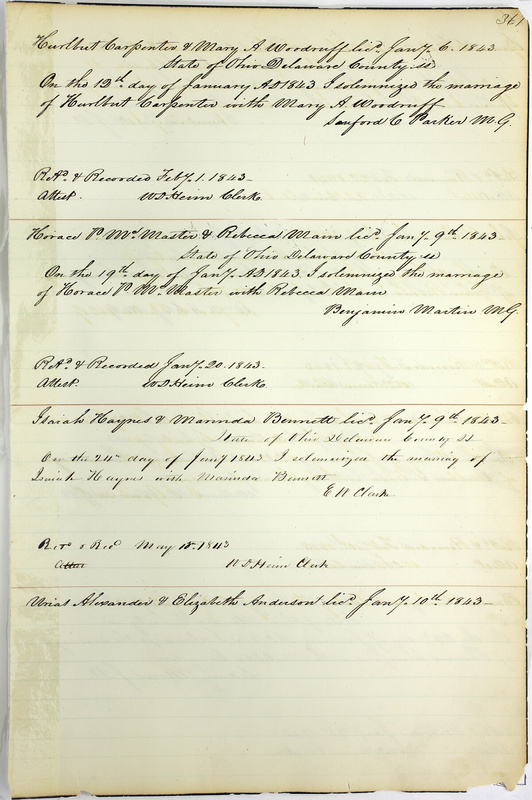 361
Hurlbut Carpenter & Mary A Woodruff licd. Jany. 6. 1843
State of Ohio Delaware County ss
On the 12th day of January AD 1843 I solemnized the marriage
of Hurlbut Carpenter with Mary A. Woodruff
Sanford C Parker M.G.
Retd. & Recorded Feby. 1. 1843
Attest. W D Heim Clerk.
Horace P. Mc.Master & Rebecca Main licd. Jany. 9th 1843
State of Ohio Delaware County ss
On the 19th day of Jany. AD 1843. I solemnized the marriage
of Horace P Mc.Master with Rebecca Main
Benjamin Martin M G
Retd. & Recorded Jany. 20. 1843.
Attest. W D Heim Clerk.
Isaiah Haynes & Marinda Bennett licd. Jany. 9th 1843
State of Ohio Delaware County SS
On the 24th day of Jany 1843 I solemnized the marriag of
Isaiah Haynes with Marinda Bennett
E W Clark
Retd & Recd May 15. 1843
Attest W D Heim Clerk
Urias Alexander & Elizabeth Anderson licd. Jany. 10th 1843